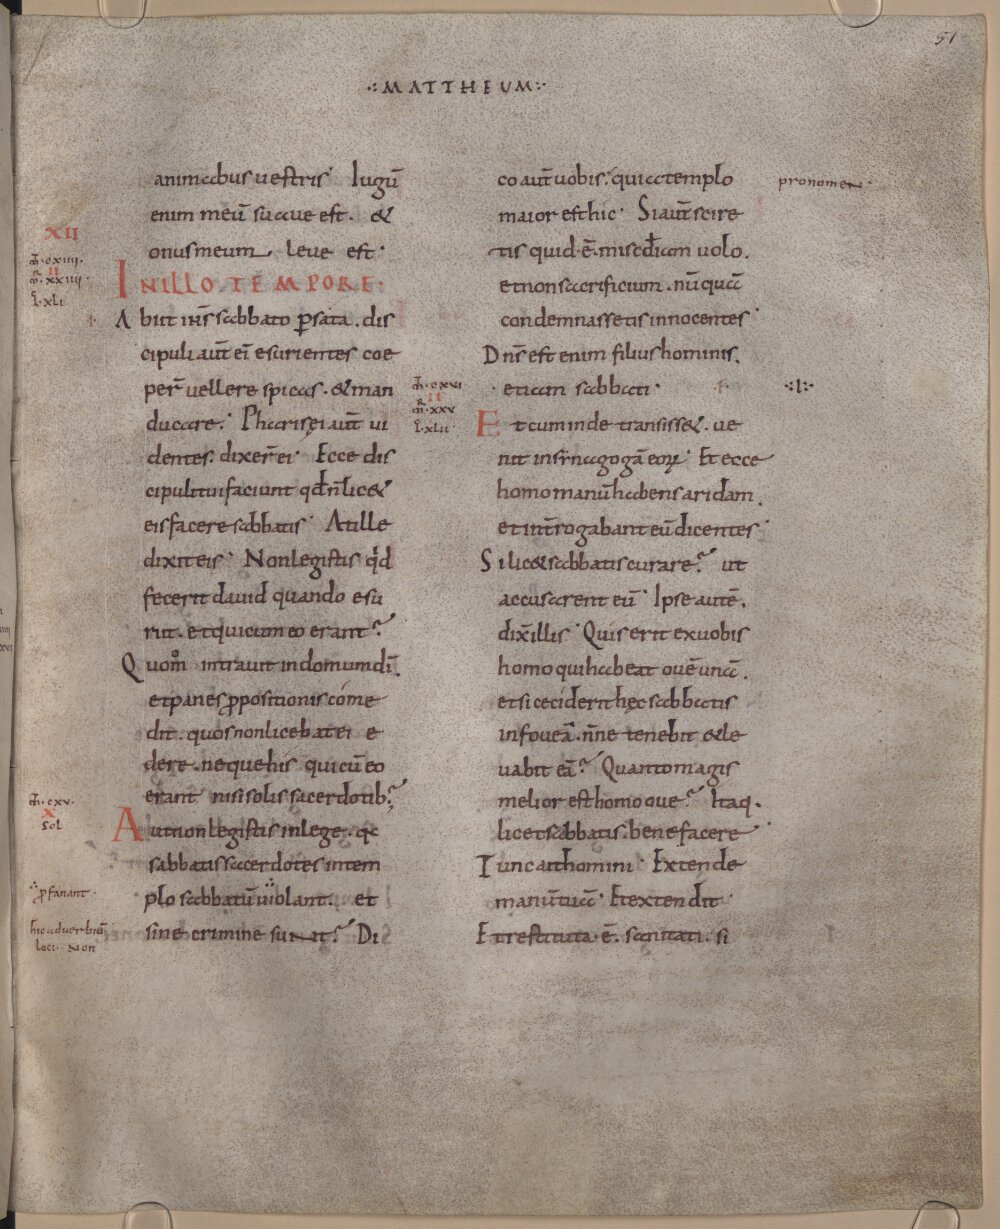 51
·:MATTHEUM:·
animabus uestris· Iugū
enim meū suaue est. &
onus meum leue est·
XII
IN ILLO TEMPORE·
m̄·cxiiii·
II
m̄·xxiiii·
l̄·xli
Abiit ih̄s sabbato p̄sata. dis
cipuli aut̄ ei esurientes coe
per̄ uellere spicas·&man
ducare· Pharisęi aut̄ ui
dentes· dixer̄ ei· Ecce dis
cipuli tui faciunt qd̄ n̄ lic&
eis facere sabbatis· At ille
dixit eis· Non legistis qd̄
fecerit dauid quando esu
riit· et qui cum eo erant?
Quom̄ intrauit in domum dī.
et panes p̄positionis come
dit· quos non licebat ei e
dere· neque his qui cū eo
erant nisi solis sacerdotib;?
m̄·cxv·
X
sol
Aut non legistis in lege· qa
sabbatis sacerdotes in tem
plo sabbatū uiolant· et
p̄fanant·
sine crimine sunt? Di
hic aduerbiū
loci· non
co aut̄ uobis· quia templo
pronomen·
maior est hic· Si aut̄ scire
tis quid·ē·misc̄diam uolo.
et non sacrificium·nūquā
condemnassetis innocentes·
Dn̄s est enim filius hominis.
etiam sabbati·
·:l:·
m̄·cxvi
II
m̄·xxv
l̄·xlii·
Et cum inde transiss&· ue
nit in synagogā eoꝝ· Et ecce
homo manū habens aridam.
et int̄rogabant eū dicentes·
Si lic& sabbatis curare? ut
accusarent eū· Ipse autē.
dix̄ illis· Quis erit ex uobis
homo qui habeat ouē unā.
et si ceciderit hęc sabbatis
in foueā· n̄ne tenebit & le
uabit eā? Quanto magis
melior est homo oue? Itaq·
licet sabbatis·benefacere·
Tunc ait homini· Extende
manū tuā· Et extendit·
Et restituta·ē·sanitati·si